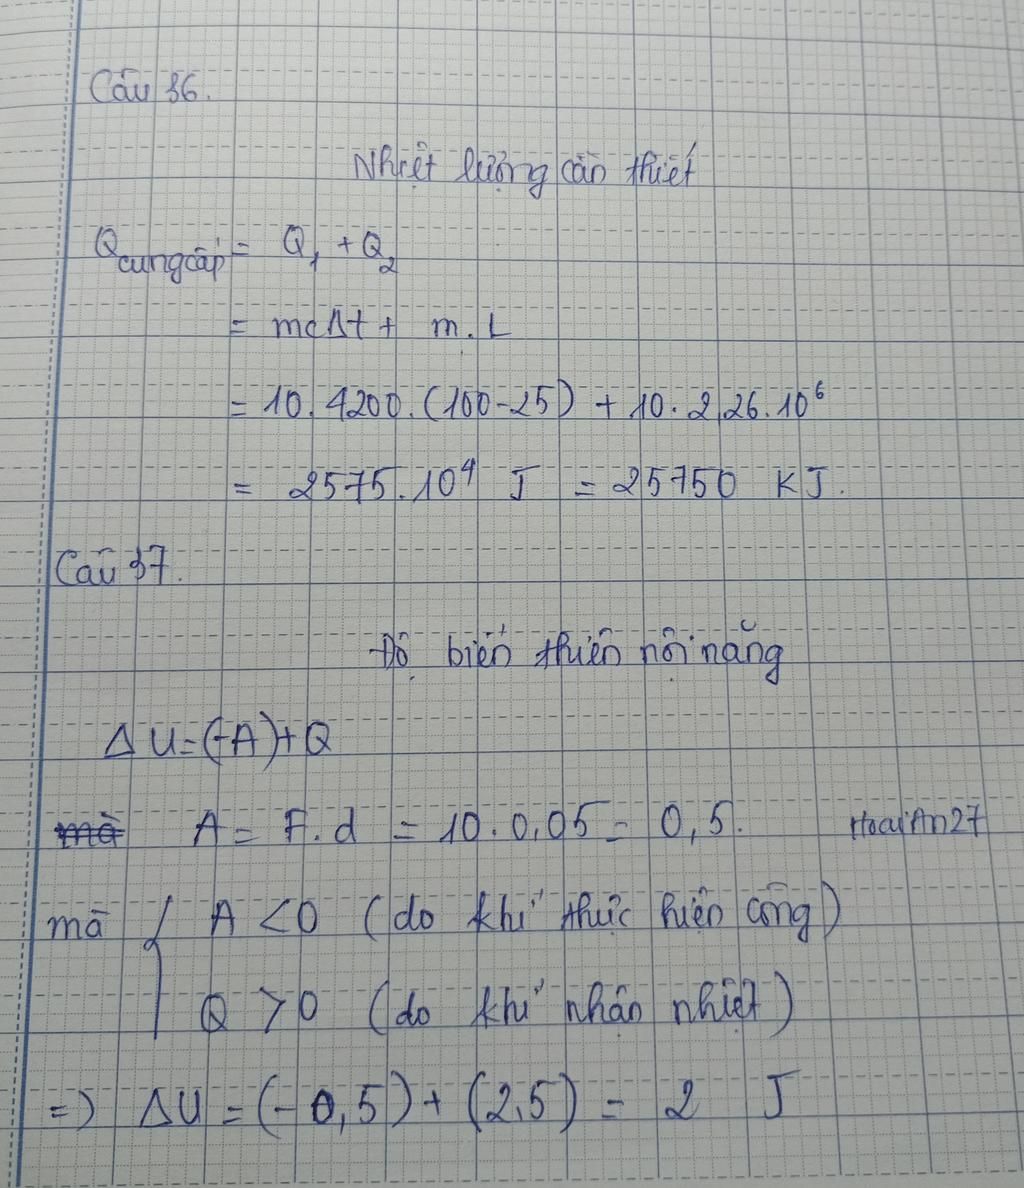 Câu 36.
Nhiệt lượng cần thiết
Qcung cấp = Q₁ + Q₂
= mcΔt + m.L
= 10.4200.(100-25) + 10.2,26.10⁶
= 2575.10⁴ J = 25750 KJ.
Câu 37.
Độ biến thiên nội năng
ΔU=(-A)+Q
mà A = F.d = 10.0,05 = 0,5. HoaiAn27
mà { A < 0 (do khí thực hiện công)
Q > 0 (do khí nhận nhiệt)
=) ΔU = (-0,5)+(2,5) = 2 J